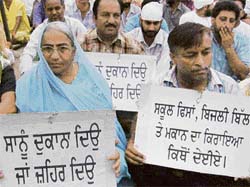 ਸਾਨੂੰ ਦੁਕਾਨ ਦਿਉ
ਜਾਂ ਜ਼ਹਿਰ ਦਿਉ
ਦੁਕਾਨ ਦਿਉ
ਜ਼ਹਿਰ ਦਿਉ
ਸਕੂਲ ਫਿਸਾਂ, ਬਿਜਲੀ ਬਿਲ
ਤੇ ਮਕਾਨ ਦਾ ਕਿਰਾਇਆ
ਕਿਥੋਂ ਦੇਈਏ।